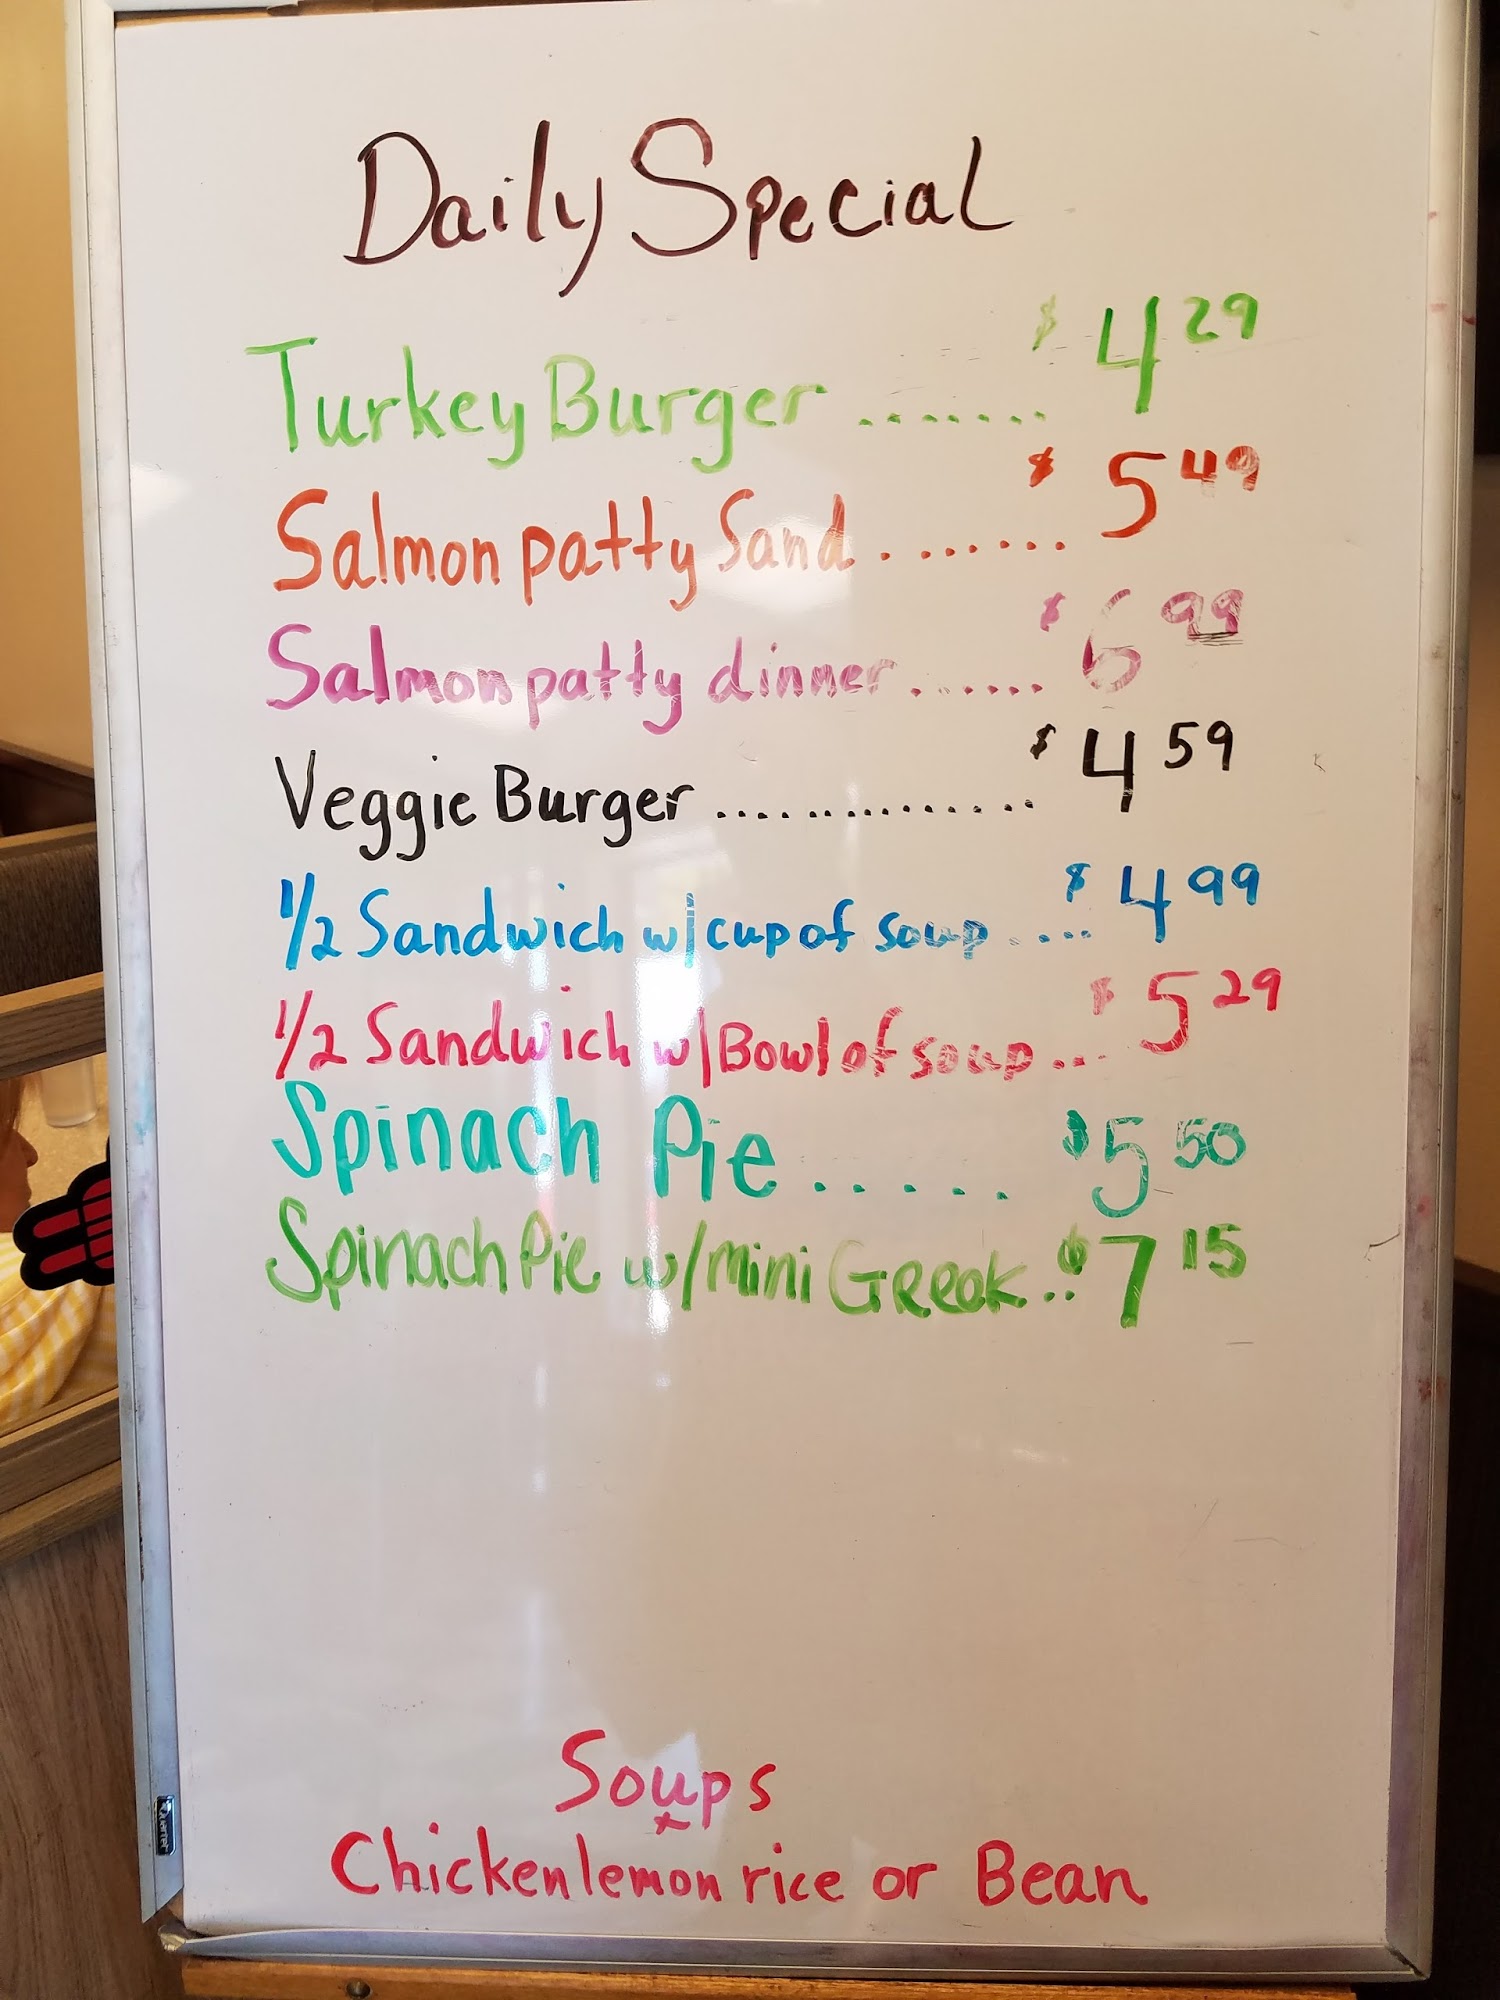 Daily Special
Turkey Burger ....... $ 4 29
Salmon patty Sand ....... $ 5 49
Salmon patty dinner ....... $ 6 99
Veggie Burger .............. $ 4 59
1/2 Sandwich w/cup of soup .... $ 4 99
1/2 Sandwich w/Bowl of soup ... $ 5 29
Spinach Pie ..... $ 5 50
Spinach Pie w/mini Greek .. $ 7 15
Soups
Chicken lemon rice or Bean
Quartet